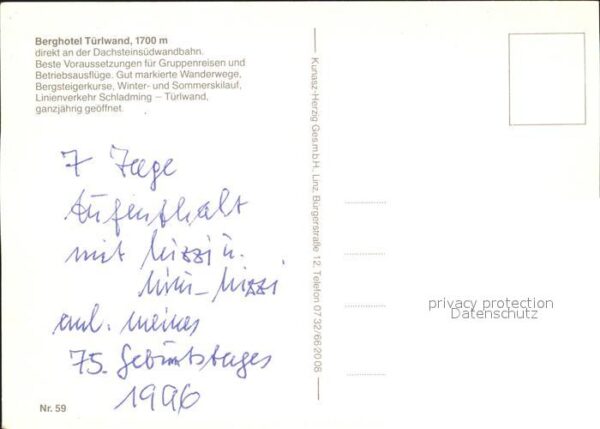 Berghotel Türlwand, 1700 m
direkt an der Dachsteinsüdwandbahn.
Beste Voraussetzungen für Gruppenreisen und
Betriebsausflüge. Gut markierte Wanderwege,
Bergsteigerkurse, Winter- und Sommerskilauf,
Linienverkehr Schladming – Türlwand,
ganzjährig geöffnet.
7 Tage
Aufenthalt
mit Mizzi u.
Mini-Mizzi
anl. meines
75. Geburtstages
1996
Nr. 59
Kunasz-Herzig Ges.m.b.H., Linz, Bürgerstraße 12, Telefon 07 32/66 20 08
privacy protection
Datenschutz